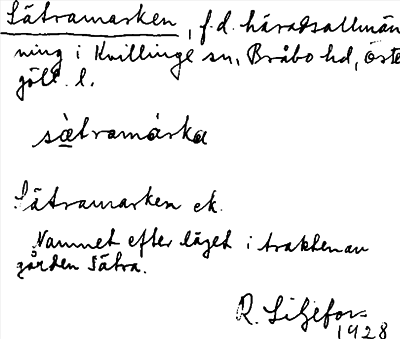 Sätramarken, f.d. häradsallmän
ning i Kvillinge sn, Bråbo hd, Öste
götl. l.
sä̀tramárka
Sätramarken ek.
Namnet efter läget i trakten av
gården Sätra.
R. Liljefors
1928